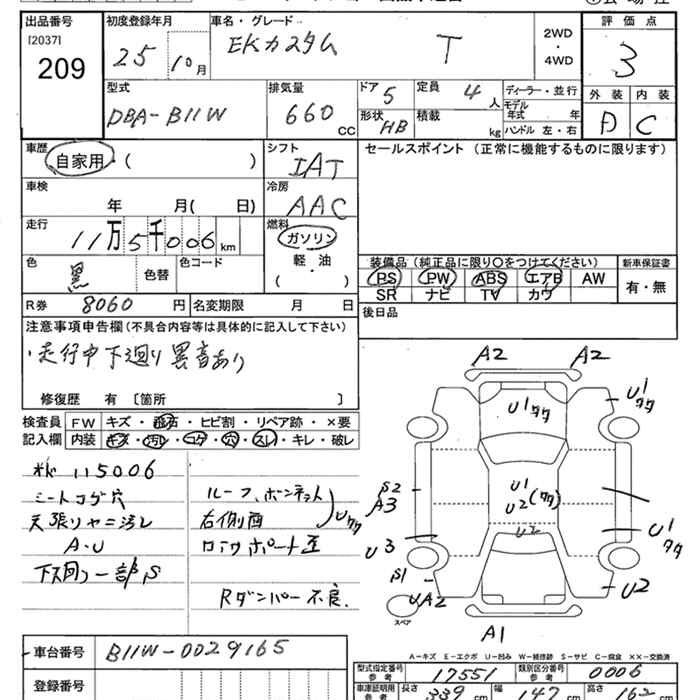 出品番号 初度登録年月 車名・グレード 評価点
[2037]
209
25 10月 EKカスタム T
2WD
・
4WD
3
型式 排気量 ドア 5 定員 4人 ディーラー・並行
外装 内装
DBA-B11W 660 CC 形状 HB 積載 kg
モデル年式 年
ハンドル 左・右
A C
車歴 自家用・( ) シフト IAT セールスポイント(正常に機能するものに限ります)
車検 年 月( 日) 冷房 AAC
走行 11万5千006km 燃料 ガソリン
軽・油
( )
色 黒 色替 色コード
装備品(純正品に限り○をつけてください) 新車保証書
PS PW ABS エアB AW 有・無
SR ナビ TV カワ
R券 8060円 名変期限 月 日 後日品
注意事項申告欄(不具合内容等は具体的に記入して下さい)
走行中下廻り異音あり
修復歴 有〔箇所 〕
検査員 FW キズ・飛石・ヒビ割・リペア跡・×要
記入欄 内装 キズ・汚レ・コゲ・穴・スレ・キレ・破レ
115006
シートコゲ穴
天張りヤニ汚レ
A・U
下廻り一部S
ルーフ、ボンネット
右側面
Uタタ
Rダンパー不良.
A2 A2
U1タタ
U1タタ
U1
U2(タタ)
U2
S2
A3
U3
U1タタ
S1
UA2
U2
A1
スペア
A-キズ E-エクボ U-凹み W-補修跡 S-サビ C-腐食 ××-交換済
車台番号 B11W-0029165
型式指定番号 参考 17551 類別区分番号 参考 0006
登録番号
車庫証明用 参考 長さ 339cm 幅 147cm 高さ 162